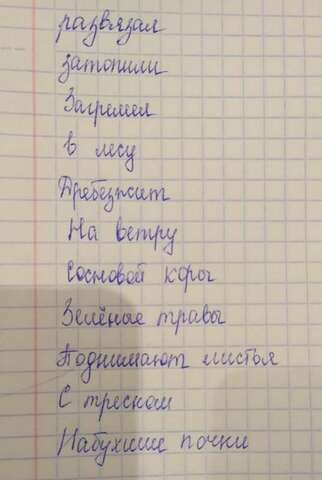 развязал
затопили
Загремел
в лесу
Дребезжит
На ветру
Сосновой коры
Зелёные травы
Поднимают листья
С треском
Набухшие почки